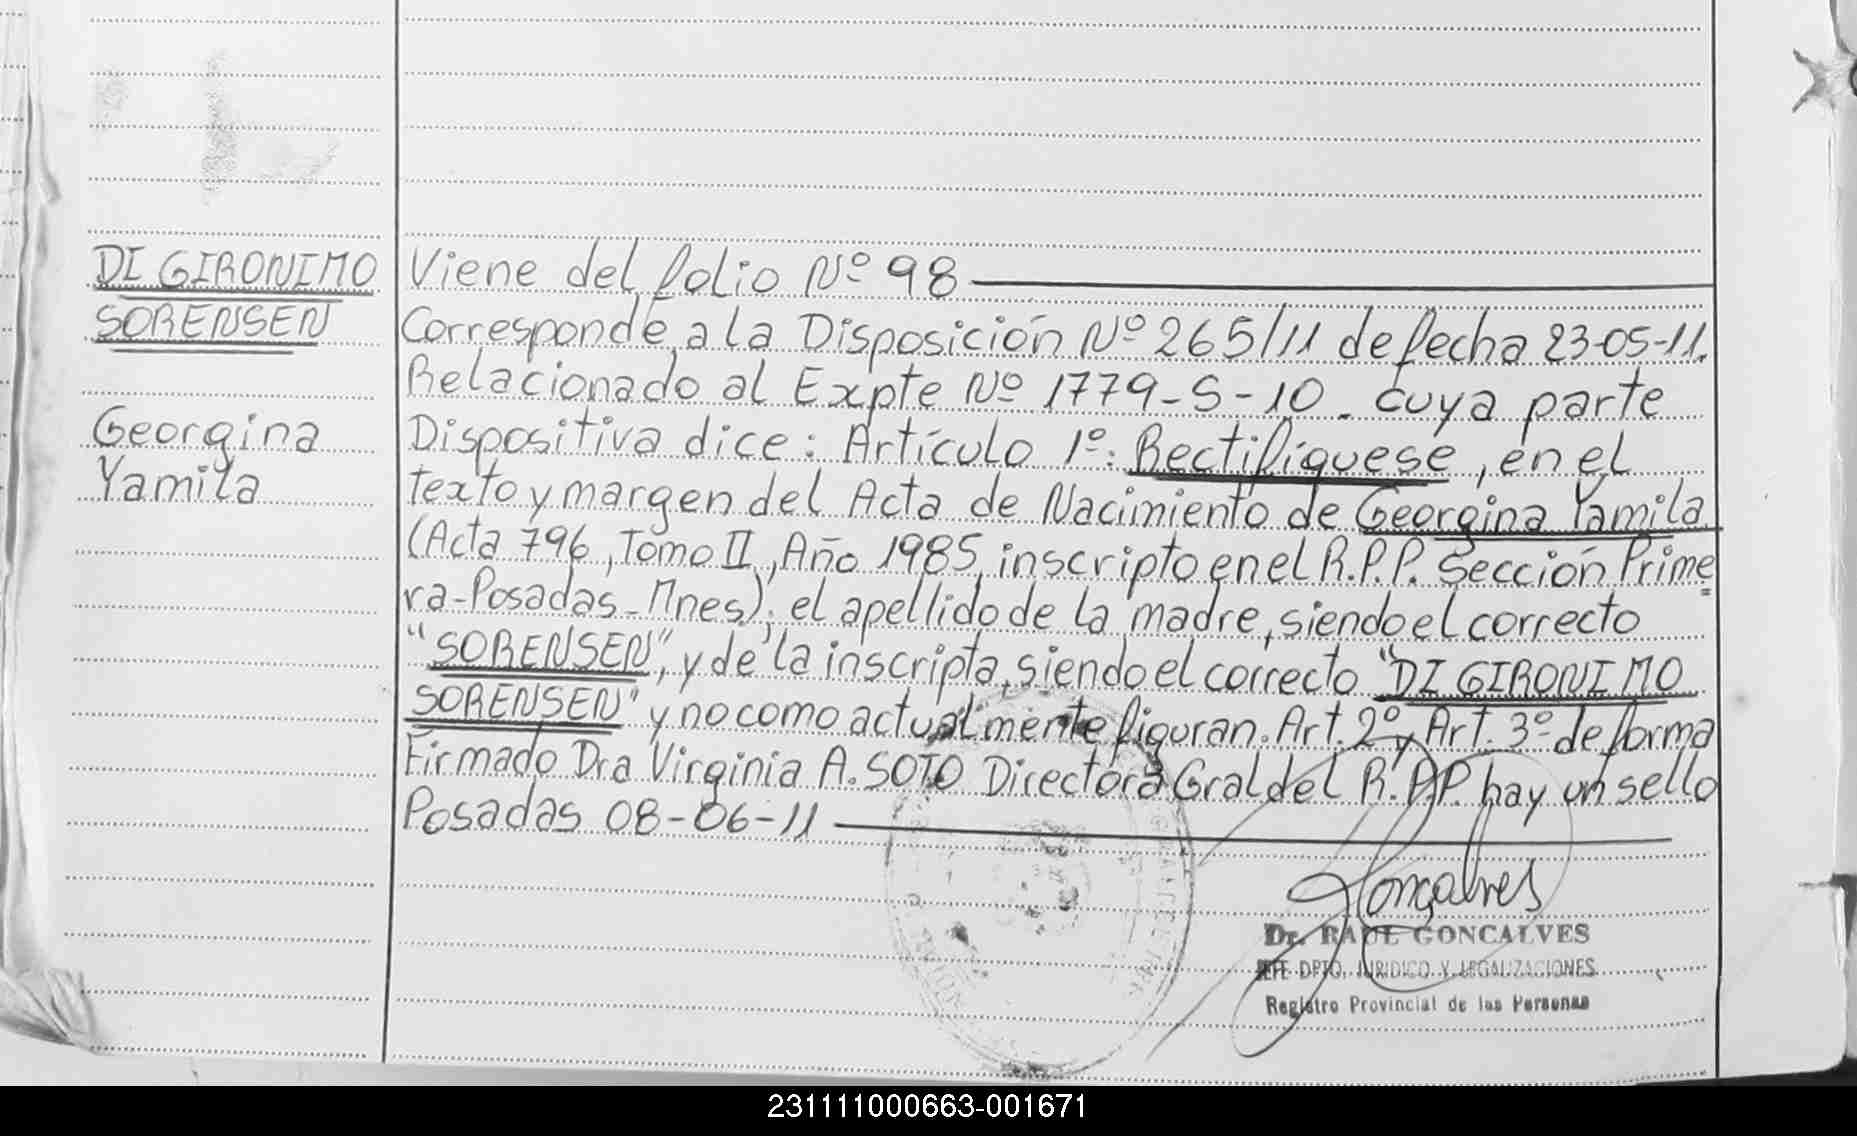 DI GIRONIMO
SORENSEN
Georgina
Yamila
Viene del folio Nº 98
Corresponde, a la Disposición Nº 265/11 de fecha 23-05-11.
Relacionado al Expte Nº 1779-S-10. cuya parte
Dispositiva dice: Artículo 1º: Rectifíquese, en el
texto y margen del Acta de Nacimiento de Georgina Yamila
(Acta 796, Tomo II, Año 1985, inscripto en el R.P.P. Sección Prime=
ra-Posadas-Mnes); el apellido de la madre, siendo el correcto
"SORENSEN", y de la inscripta, siendo el correcto "DI GIRONIMO
SORENSEN" y no como actualmente figuran. Art. 2º y Art. 3º de forma
Firmado Dra Virginia A. SOTO Directora Gral del R.P.P. hay un sello
Posadas 08-06-11
Gonçalves
Dr. RAUL GONCALVES
JEFE DPTO. JURIDICO Y LEGALIZACIONES
Registro Provincial de las Personas
231111000663-001671